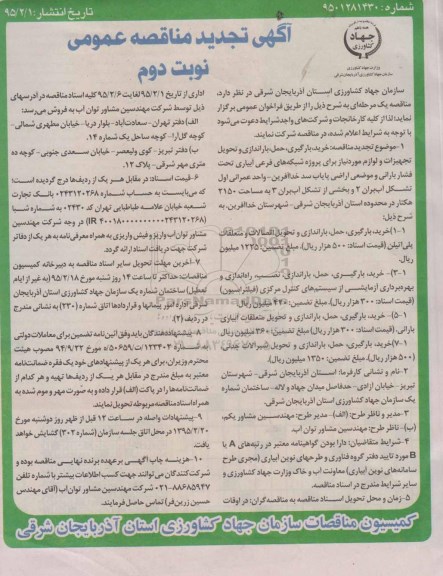 شماره: ۹۵۰۱۲۸۱۴۳۰
تاریخ انتشار: ۹۵/۲/۱
جهاد
کشاورزی
وزارت جهاد کشاورزی
سازمان جهاد کشاورزی آذربایجان شرقی
آگهی تجدید مناقصه عمومی
نوبت دوم
سازمان جهاد کشاورزی استان آذربایجان شرقی در نظر دارد،
مناقصه یک مرحله‌ای به شرح ذیل را از طریق فراخوان عمومی برگزار
نماید؛ لذا از کلیه کارخانجات و شرکت‌های واجد شرایط دعوت می‌شود
با توجه به شرایط اعلام شده، در مناقصه شرکت نمایند.
۱-موضوع تجدید مناقصه: خرید، بارگیری، حمل، باراندازی و تحویل
تجهیزات و لوازم مورد نیاز برای پروژه شبکه‌های فرعی آبیاری تحت
فشار بارانی و موضعی اراضی پایاب سد خداآفرین- واحد عمرانی اول
تشکل آب‌بران ۲ و بخشی از تشکل آب‌بران ۳ به مساحت ۲۱۵۰
هکتار در محدوده استان آذربایجان شرقی- شهرستان خداآفرین، به
شرح ذیل:
۱-۱) خرید، بارگیری، حمل، باراندازی و تحویل اتصالات و متعلقات
پلی‌اتیلن (قیمت اسناد: ۵۰۰ هزار ریال)، مبلغ تضمین: ۱۲۲۵ میلیون
ریال.
۳-۱) خرید، بارگیری، حمل، باراندازی، نصب، راه‌اندازی و
بهره‌برداری آزمایشی از سیستم‌های کنترل مرکزی (فیلتراسیون)
(قیمت اسناد: ۳۰۰ هزار ریال)، مبلغ تضمین: ۷۲۰ میلیون ریال.
۵-۱) خرید، بارگیری، حمل، باراندازی و تحویل متعلقات آبیاری
بارانی، (قیمت اسناد: ۳۰۰ هزار ریال)، مبلغ تضمین: ۳۶۰ میلیون ریال.
۷-۱) خرید، بارگیری، حمل، باراندازی و تحویل شیرآلات چدنی
(۵۰۰ هزار ریال)، مبلغ تضمین: ۱۲۵۰ میلیون ریال.
۲-نام و نشانی کارفرما: استان آذربایجان شرقی- شهرستان
تبریز- خیابان آزادی- حدفاصل میدان جهاد و لاله- ساختمان شماره
یک سازمان جهاد کشاورزی استان آذربایجان شرقی.
۳-مدیر و ناظر طرح: (الف)- مدیر طرح: مهندسین مشاور یکم،
(ب)- ناظر طرح: مهندسین مشاور توان آب.
۴-شرایط متقاضیان: دارا بودن گواهینامه معتبر در رتبه‌های A یا
B مورد تایید دفتر گروه فناوری و طرح‎های نوین آبیاری (مجری طرح
سامانه‌های نوین آبیاری) معاونت آب و خاک وزارت جهاد کشاورزی و
سایر شرایط مندرج در اسناد مناقصه.
۵-زمان و محل تحویل اسناد مناقصه به مناقصه‌گران: در اوقات
اداری از تاریخ ۹۵/۲/۱ لغایت ۹۵/۲/۶ کلیه اسناد مناقصه در آدرسهای
ذیل توسط شرکت مهندسین مشاور توان آب به فروش می‌رسد:
الف) دفتر تهران- سعادت‌آباد- بلوار دریا- خیابان مطهری شمالی-
کوچه گل‌آرا- کوچه ساحل یک شماره ۱۴.
ب) دفتر تبریز- کوی ولیعصر- خیابان سعدی جنوبی- کوچه ده
متری مهر شرقی- پلاک ۱۲.
۶-قیمت اسناد: در مقابل هر یک از ردیف‌ها درج گردیده است؛
که می‌بایست به حساب شماره ۲۴۳۱۲۰۲۶۸ بانک تجارت
شعبه خیابان علامه طباطبایی تهران کد ۲۴۳۰ به شماره شبا
(IR ۴۰۰۱۸۰۰۰۰۰۰۰۰۰۰۲۴۳۱۲۰۲۶۸) در وجه شرکت مهندسین
مشاور توان آب واریز و فیش واریزی به همراه معرفی نامه به هر یک از دفاتر
شرکت جهت دریافت اسناد ارائه گردد.
۷-آخرین مهلت تحویل سایر اسناد مناقصه به دبیرخانه کمیسیون
مناقصات: حداکثر تا ساعت ۱۴ روز شنبه مورخ ۹۵/۲/۱۸ (به غیر از ایام
تعطیل) ساختمان شماره یک سازمان جهاد کشاورزی استان آذربایجان
شرقی اداره امور پیمانها و قراردادها اتاق شماره (۲۳۰) به نشانی مندرج
در ردیف (۲).
۸-پیشنهاددهندگان باید وفق آئین‌نامه تضمین برای معاملات دولتی
شماره ۱۲۳۴۰۲/ت ۵۰۶۵۹ه مورخ ۹۴/۹/۲۲ مصوب هیئت
محترم وزیران، برای هر یک از پیشنهادهای خود یک فقره ضمانت‌نامه
معتبر به مبلغ مندرج در مقابل هر یک از ردیف‌ها تهیه و هر کدام از
ضمانت‌نامه‌ها را در پاکت (الف) قرار داده و به صورت مهر و موم شده به
همراه اسناد مناقصه مربوطه تحویل نمایند.
۹-پیشنهادات واصله در ساعت ۱۴ قبل از ظهر روز دوشنبه مورخ
۱۳۹۵/۲/۲۰ در محل اتاق جلسه سازمان (شماره ۳۰۲) گشایش خواهد
یافت.
۱۰-هزینه چاپ آگهی بر عهده برنده نهایی مناقصه بوده و
شرکت کنندگان می‌توانند جهت کسب اطلاعات بیشتر با شماره تلفن
۸۸۶۸۵۹۴۷-۰۲۱ شرکت مهندسین مشاور توان آب (آقای مهندس
حسین زرین‌فر) تماس حاصل فرمایند.
کمیسیون مناقصات سازمان جهاد کشاورزی استان آذربایجان شرقی